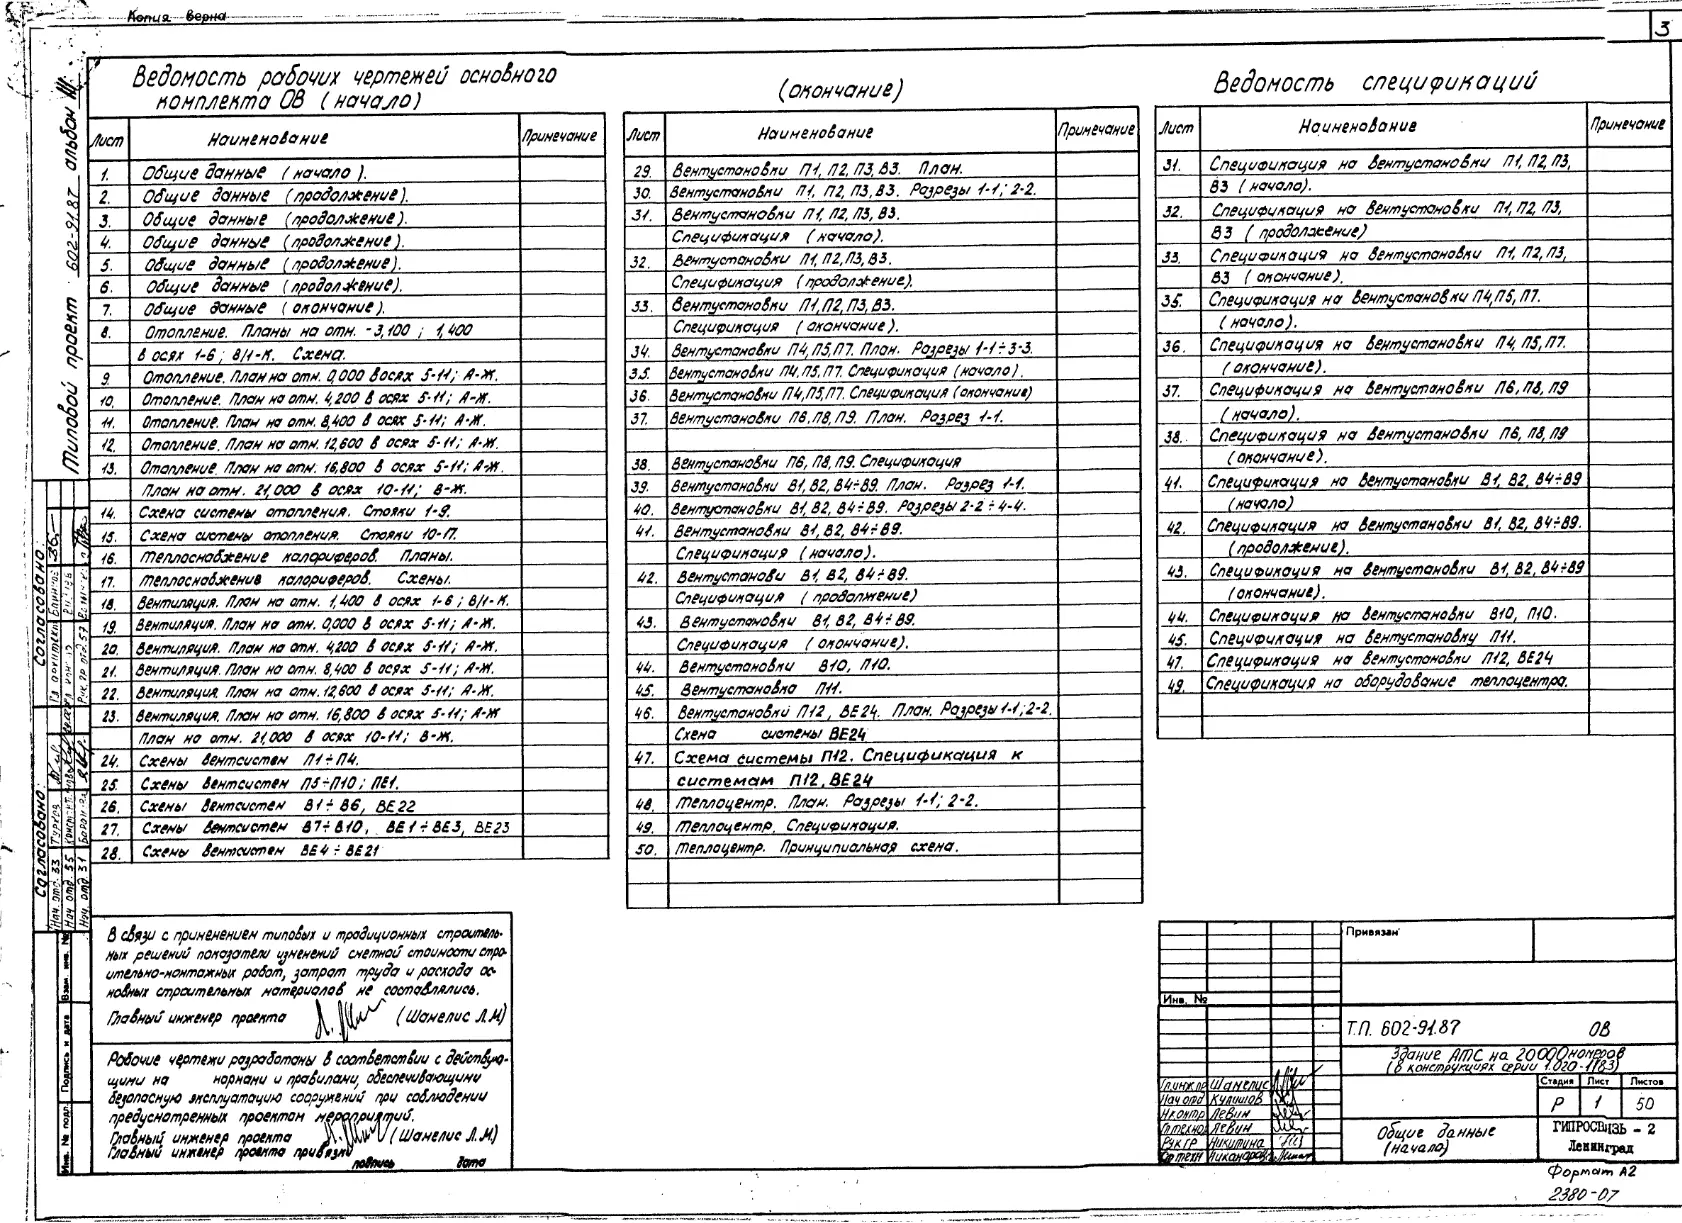 Копия верна
3
Типовой проект 602-91.87 альбом III.
Ведомость рабочих чертежей основного
комплекта ОВ (начало)
Лист Наименование Примечание
1. Общие данные (начало).
2. Общие данные (продолжение).
3. Общие данные (продолжение).
4. Общие данные (продолжение).
5. Общие данные (продолжение).
6. Общие данные (продолжение).
7. Общие данные (окончание).
8. Отопление. Планы на отм. -3,100 ; 1,400
в осях 1-6 ; В/1-К. Схема.
9. Отопление. План на отм. 0,000 в осях 5-11; А-Ж.
10. Отопление. План на отм. 4,200 в осях 5-11; А-Ж.
11. Отопление. План на отм. 8,400 в осях 5-11; А-Ж.
12. Отопление. План на отм. 12,600 в осях 5-11; А-Ж.
13. Отопление. План на отм. 16,800 в осях 5-11; А-Ж.
План на отм. 21,000 в осях 10-11; В-Ж.
14. Схема системы отопления. Стояки 1-9.
15. Схема системы отопления. Стояки 10-17.
16. Теплоснабжение калориферов. Планы.
17. Теплоснабжение калориферов. Схемы.
18. Вентиляция. План на отм. 1,400 в осях 1-6 ; В/1-К.
19. Вентиляция. План на отм. 0,000 в осях 5-11; А-Ж.
20. Вентиляция. План на отм. 4,200 в осях 5-11; А-Ж.
21. Вентиляция. План на отм. 8,400 в осях 5-11; А-Ж.
22. Вентиляция. План на отм. 12,600 в осях 5-11; А-Ж.
23. Вентиляция. План на отм. 16,800 в осях 5-11; А-Ж
План на отм. 21,000 в осях 10-11; В-Ж.
24. Схемы вентсистем П1÷П4.
25. Схемы вентсистем П5÷П10 ; ПЕ1.
26. Схемы вентсистем В1÷В6, ВЕ22
27. Схемы вентсистем В7÷В10, ВЕ1÷ВЕ3, ВЕ23
28. Схемы вентсистем ВЕ4÷ВЕ21
(окончание)
Лист Наименование Примечание
29. Вентустановки П1, П2, П3, В3. План.
30. Вентустановки П1, П2, П3, В3. Разрезы 1-1; 2-2.
31. Вентустановки П1, П2, П3, В3.
Спецификация (начало).
32. Вентустановки П1, П2, П3, В3.
Спецификация (продолжение).
33. Вентустановки П1, П2, П3, В3.
Спецификация (окончание).
34. Вентустановки П4, П5, П7. План. Разрезы 1-1÷3-3.
35. Вентустановки П4, П5, П7. Спецификация (начало).
36. Вентустановки П4, П5, П7. Спецификация (окончание)
37. Вентустановки П6, П8, П9. План. Разрез 1-1.
38. Вентустановки П6, П8, П9. Спецификация
39. Вентустановки В1, В2, В4÷В9. План. Разрез 1-1.
40. Вентустановки В1, В2, В4÷В9. Разрезы 2-2÷4-4.
41. Вентустановки В1, В2, В4÷В9.
Спецификация (начало).
42. Вентустанови В1, В2, В4÷В9.
Спецификация (продолжение)
43. Вентустановки В1, В2, В4÷В9.
Спецификация (окончание).
44. Вентустановки В10, П10.
45. Вентустановка П11.
46. Вентустановки П12, ВЕ24. План. Разрезы 1-1; 2-2.
Схема системы ВЕ24
47. Схема системы П12. Спецификация к
системам П12, ВЕ24
48. Теплоцентр. План. Разрезы 1-1; 2-2.
49. Теплоцентр. Спецификация.
50. Теплоцентр. Принципиальная схема.
Ведомость спецификаций
Лист Наименование Примечание
31. Спецификация на вентустановки П1, П2, П3,
В3 (начало).
32. Спецификация на вентустановки П1, П2, П3,
В3 (продолжение)
33. Спецификация на вентустановки П1, П2, П3,
В3 (окончание).
35. Спецификация на вентустановки П4, П5, П7.
(начало).
36. Спецификация на вентустановки П4, П5, П7.
(окончание).
37. Спецификация на вентустановки П6, П8, П9
(начало).
38. Спецификация на вентустановки П6, П8, П9
(окончание).
41. Спецификация на вентустановки В1, В2, В4÷В9
(начало)
42. Спецификация на вентустановки В1, В2, В4÷В9.
(продолжение).
43. Спецификация на вентустановки В1, В2, В4÷В9
(окончание).
44. Спецификация на вентустановки В10, П10.
45. Спецификация на вентустановку П11.
47. Спецификация на вентустановки П12, ВЕ24
49. Спецификация на оборудование теплоцентра.
В связи с применением типовых и традиционных строитель-
ных решений показатели изменений сметной стоимости стро-
ительно-монтажных работ, затрат труда и расхода ос-
новных строительных материалов не составлялись.
Главный инженер проекта (Шамелис Л.М)
Рабочие чертежи разработаны в соответствии с действую-
щими на нормами и правилами, обеспечивающими
безопасную эксплуатацию сооружений при соблюдении
предусмотренных проектом мероприятий.
Главный инженер проекта (Шамелис Л.М)
Главный инженер проекта привязки
подпись дата
Согласовано:
Согласовано:
Нач. отд. 33
Нач. отд. 55
Нач. отд. 31
Взам. инв. №
Подпись и дата
Инв. № подл.
Привязан
Инв. №
Т.П. 602-91.87 ОВ
Здание АТС на 20000 номеров
(в конструкциях серии 1.020-1/83)
Гл.инж.пр Шамелис
Нач отд Кулишов
Н.контр Левин
Гл.техно Левин
Рук гр Никитина
Ст техн
Стадия Лист Листов
Р 1 50
Общие данные
(начало)
ГИПРОСВЯЗЬ - 2
Ленинград
Формат А2
2380-07